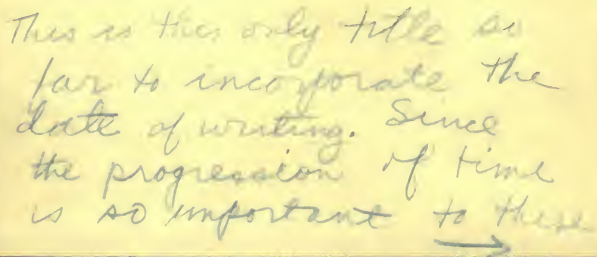 This is the only title so
far to incorporate the
date of writing. Since
the progression of time
is so important to these